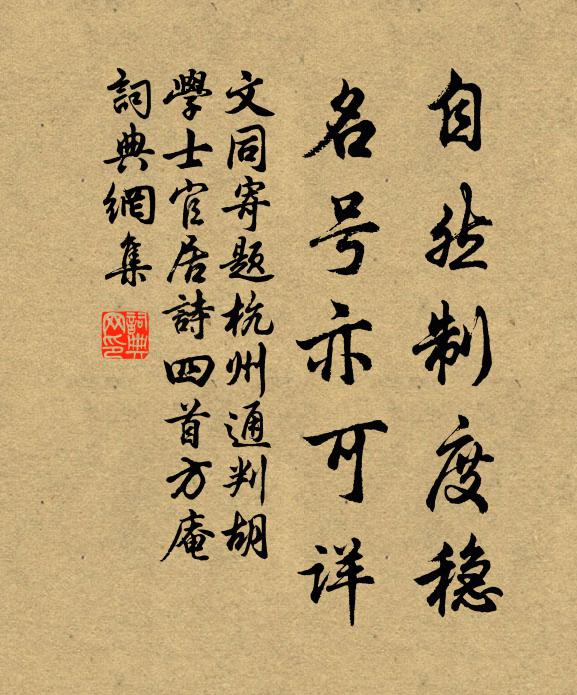 自然制度稳
名号亦可详
文同寄题杭州通判胡
學士官居詩四首方庵
詞典網集
詞典網印